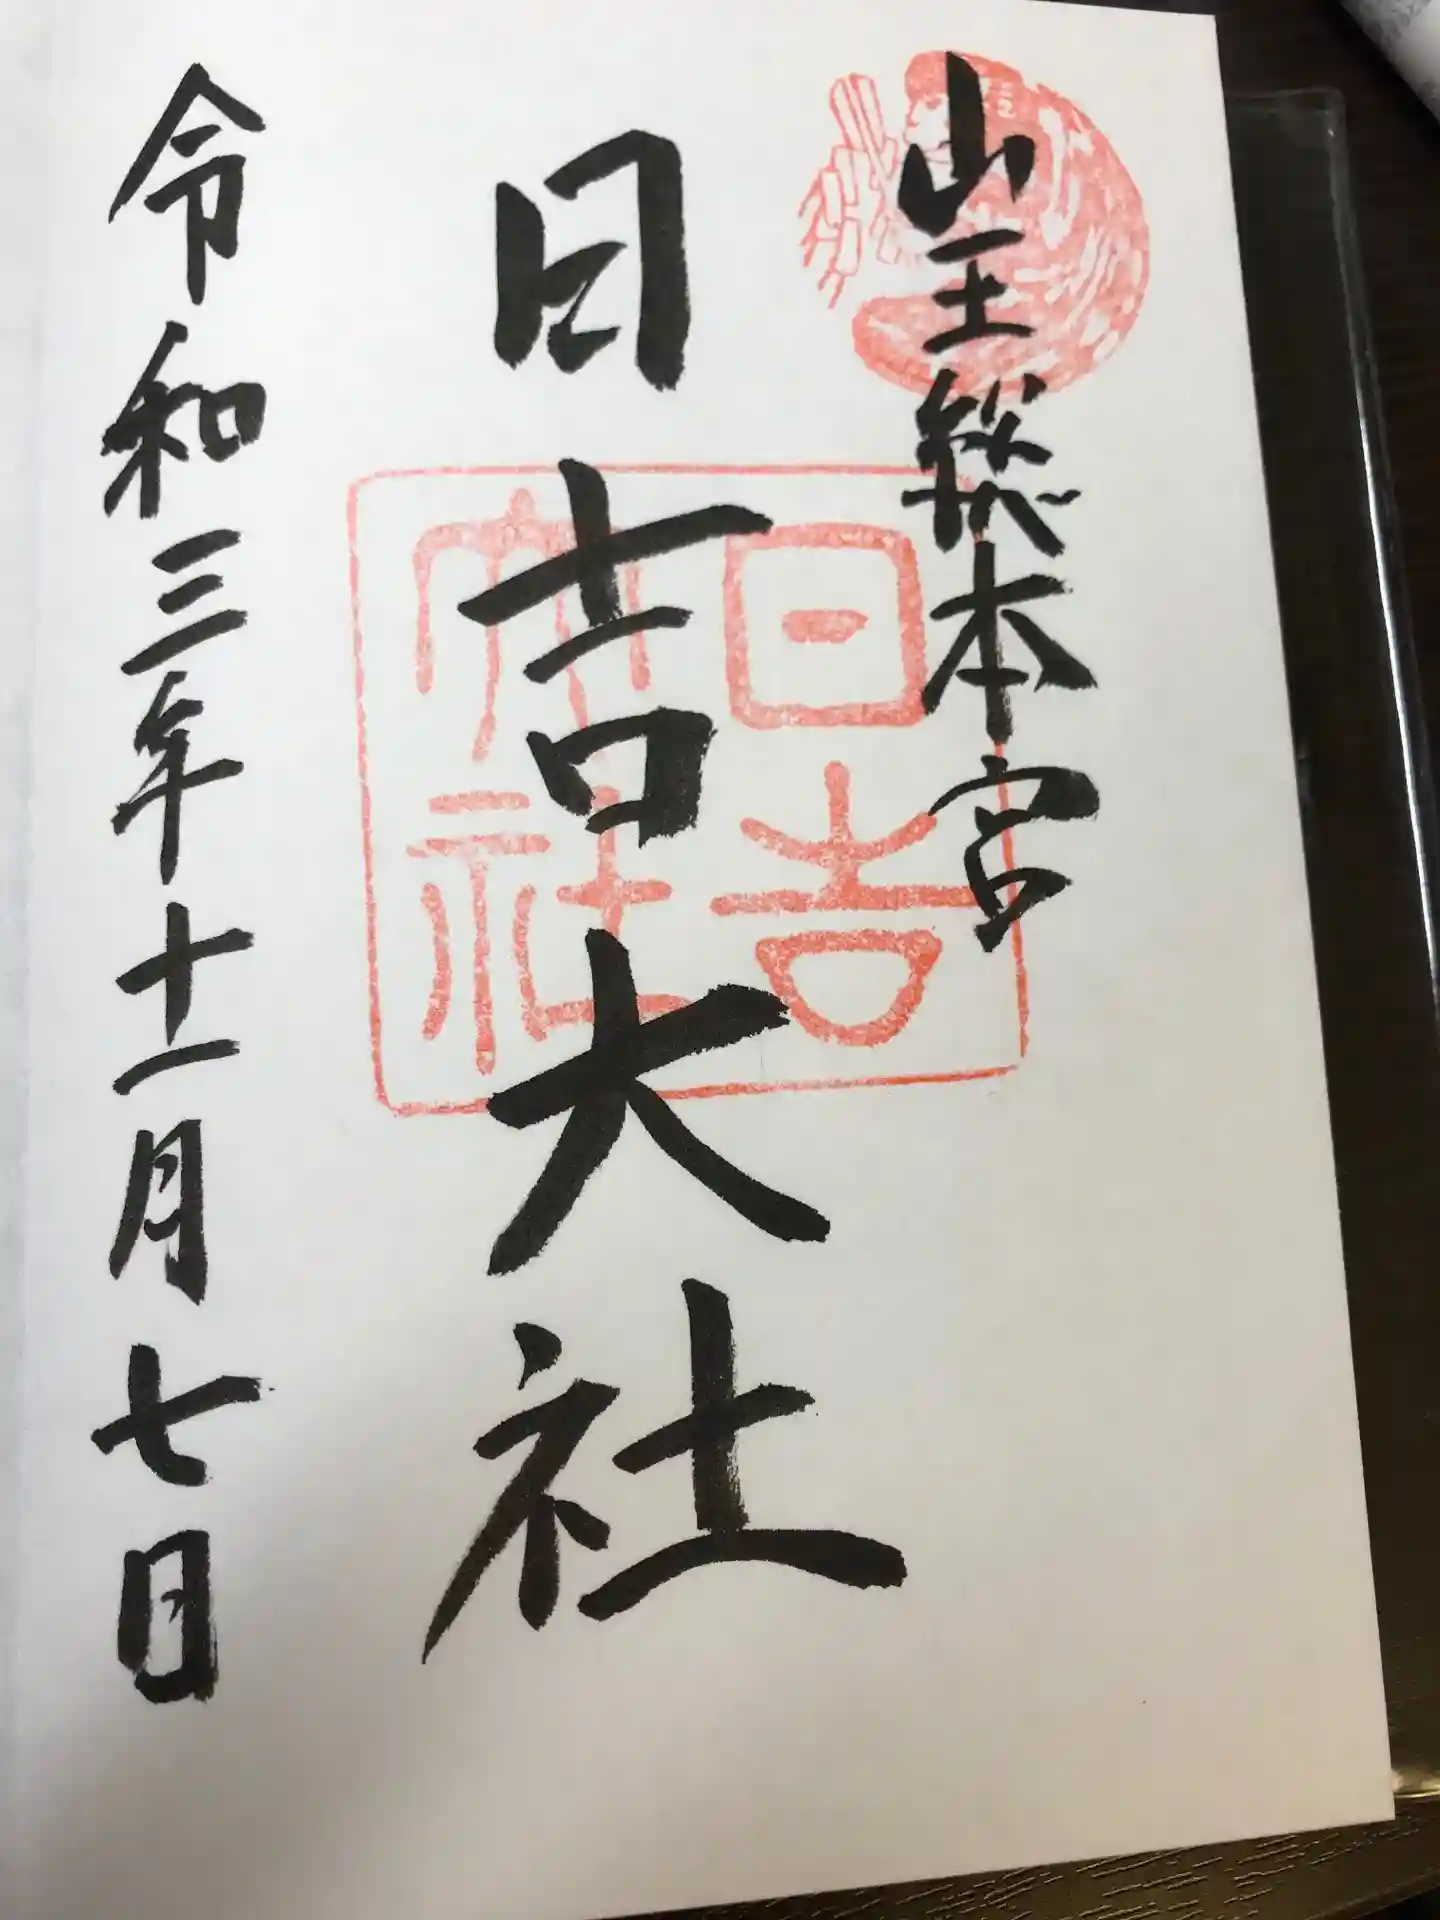 山王総本宮
日吉大社
日吉大社
令和三年十一月七日